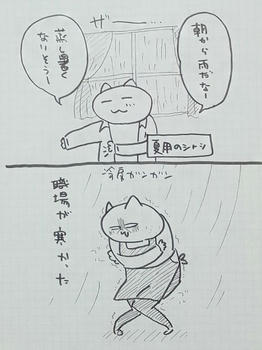 ザー…
朝から
雨だなー
蒸し暑く
ないそうー
夏用のシャツ
冷房ガンガン
職場が寒かった